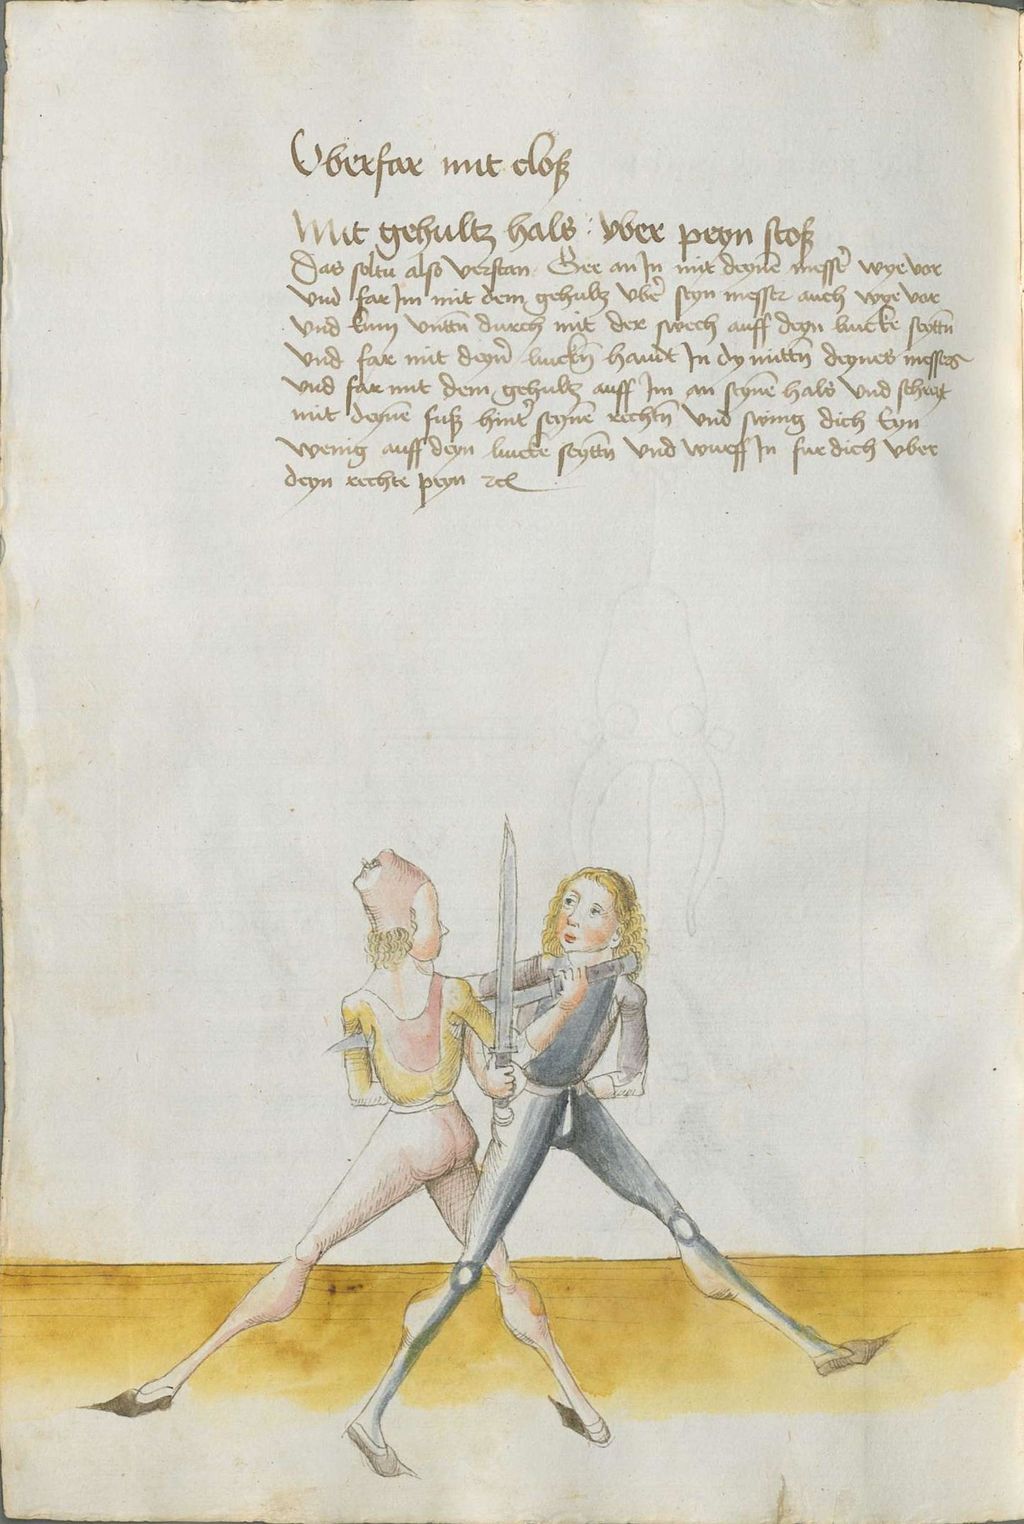 Vberfar mit cloß
Mit gehultz hals : vber peyn stoß
Das soltu also verstan Gee an In mit deynē messer wye vor
vnd far Im mit dem gehultz vber seyn messer auch wye vor
vnd kum vnttn durch mit der swech auff deyn lincke seyttn
vnd far mit deyner linckn handt In dy mittn deynes messers
vnd far mit dem gehultz auff Im an seynē hals vnd schreyt
mit deynē fuß hinter seynē rechtn vnd swing dich Eyn
wenig auff deyn lincke seyttn vnd wurff In fur dich vber
deyn rechte peyn